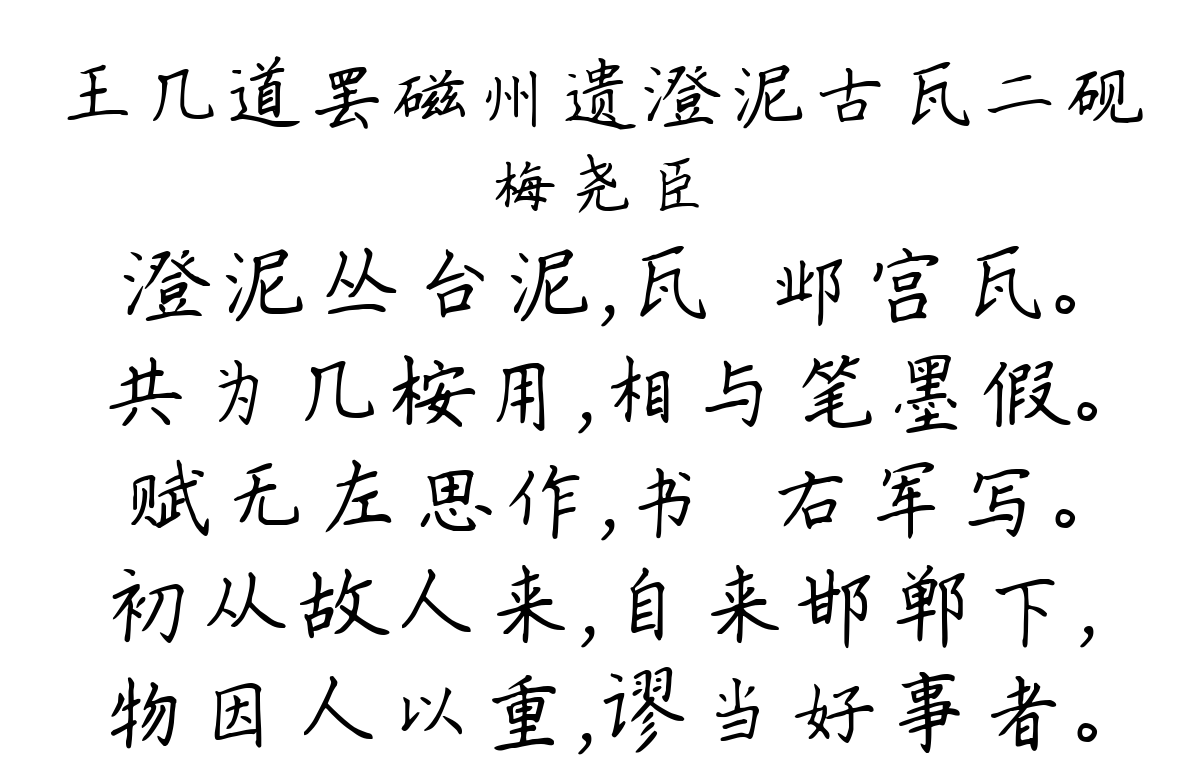 王几道罢磁州遗澄泥古瓦二砚
梅尧臣
澄泥丛台泥,瓦 邺宫瓦。
共为几桉用,相与笔墨假。
赋无左思作,书 右军写。
初从故人来,自来邯郸下,
物因人以重,谬当好事者。